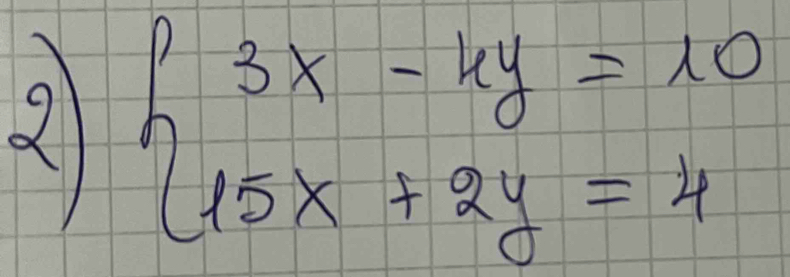 2) { 3x - 4y = 10
15x + 2y = 4